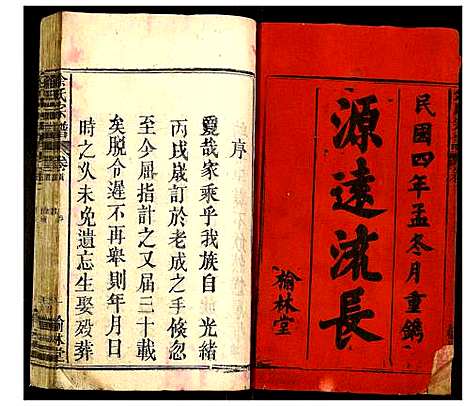 民國四年孟冬月重鐫
源遠流長
榆林堂
序
戞哉家乘乎我族自 光緒
丙戌歲訂於老成之手倏忽
至今屈指計之又届三十載
矣脫令遲不再舉則年月日
時之久未免遺忘生娶殁葬
余氏宗譜 卷首
榆林堂